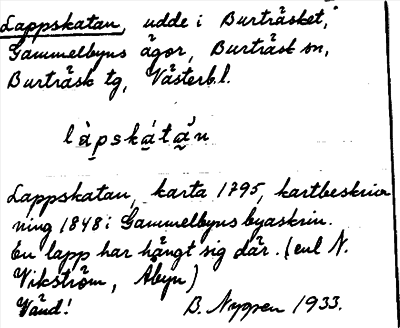 Lappskatan, udde i Burträsket,
Gammelbyns ägor, Burträsk sn,
Burträsk tg, Västerb. l.
làpskátá̀n
Lappskatan, karta 1795, kartbeskriv
ning 1848 i Gammelbyns byaskrin.
En lapp har hängt sig där. (enl N.
Vikström, Åbyn)
Vänd! B. Nygren 1933.